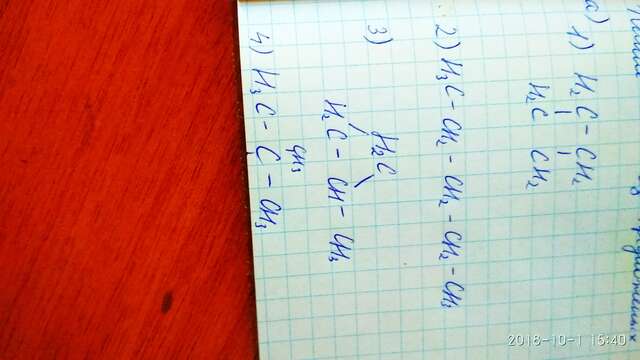 а)
1) H2C – CH2
H2C CH2
2) H3C – CH2 – CH2 – CH2 – CH3
3)
H2C
H2C – CH – CH3
CH3
4) H3C – C – CH3
2018-10-1 15:40